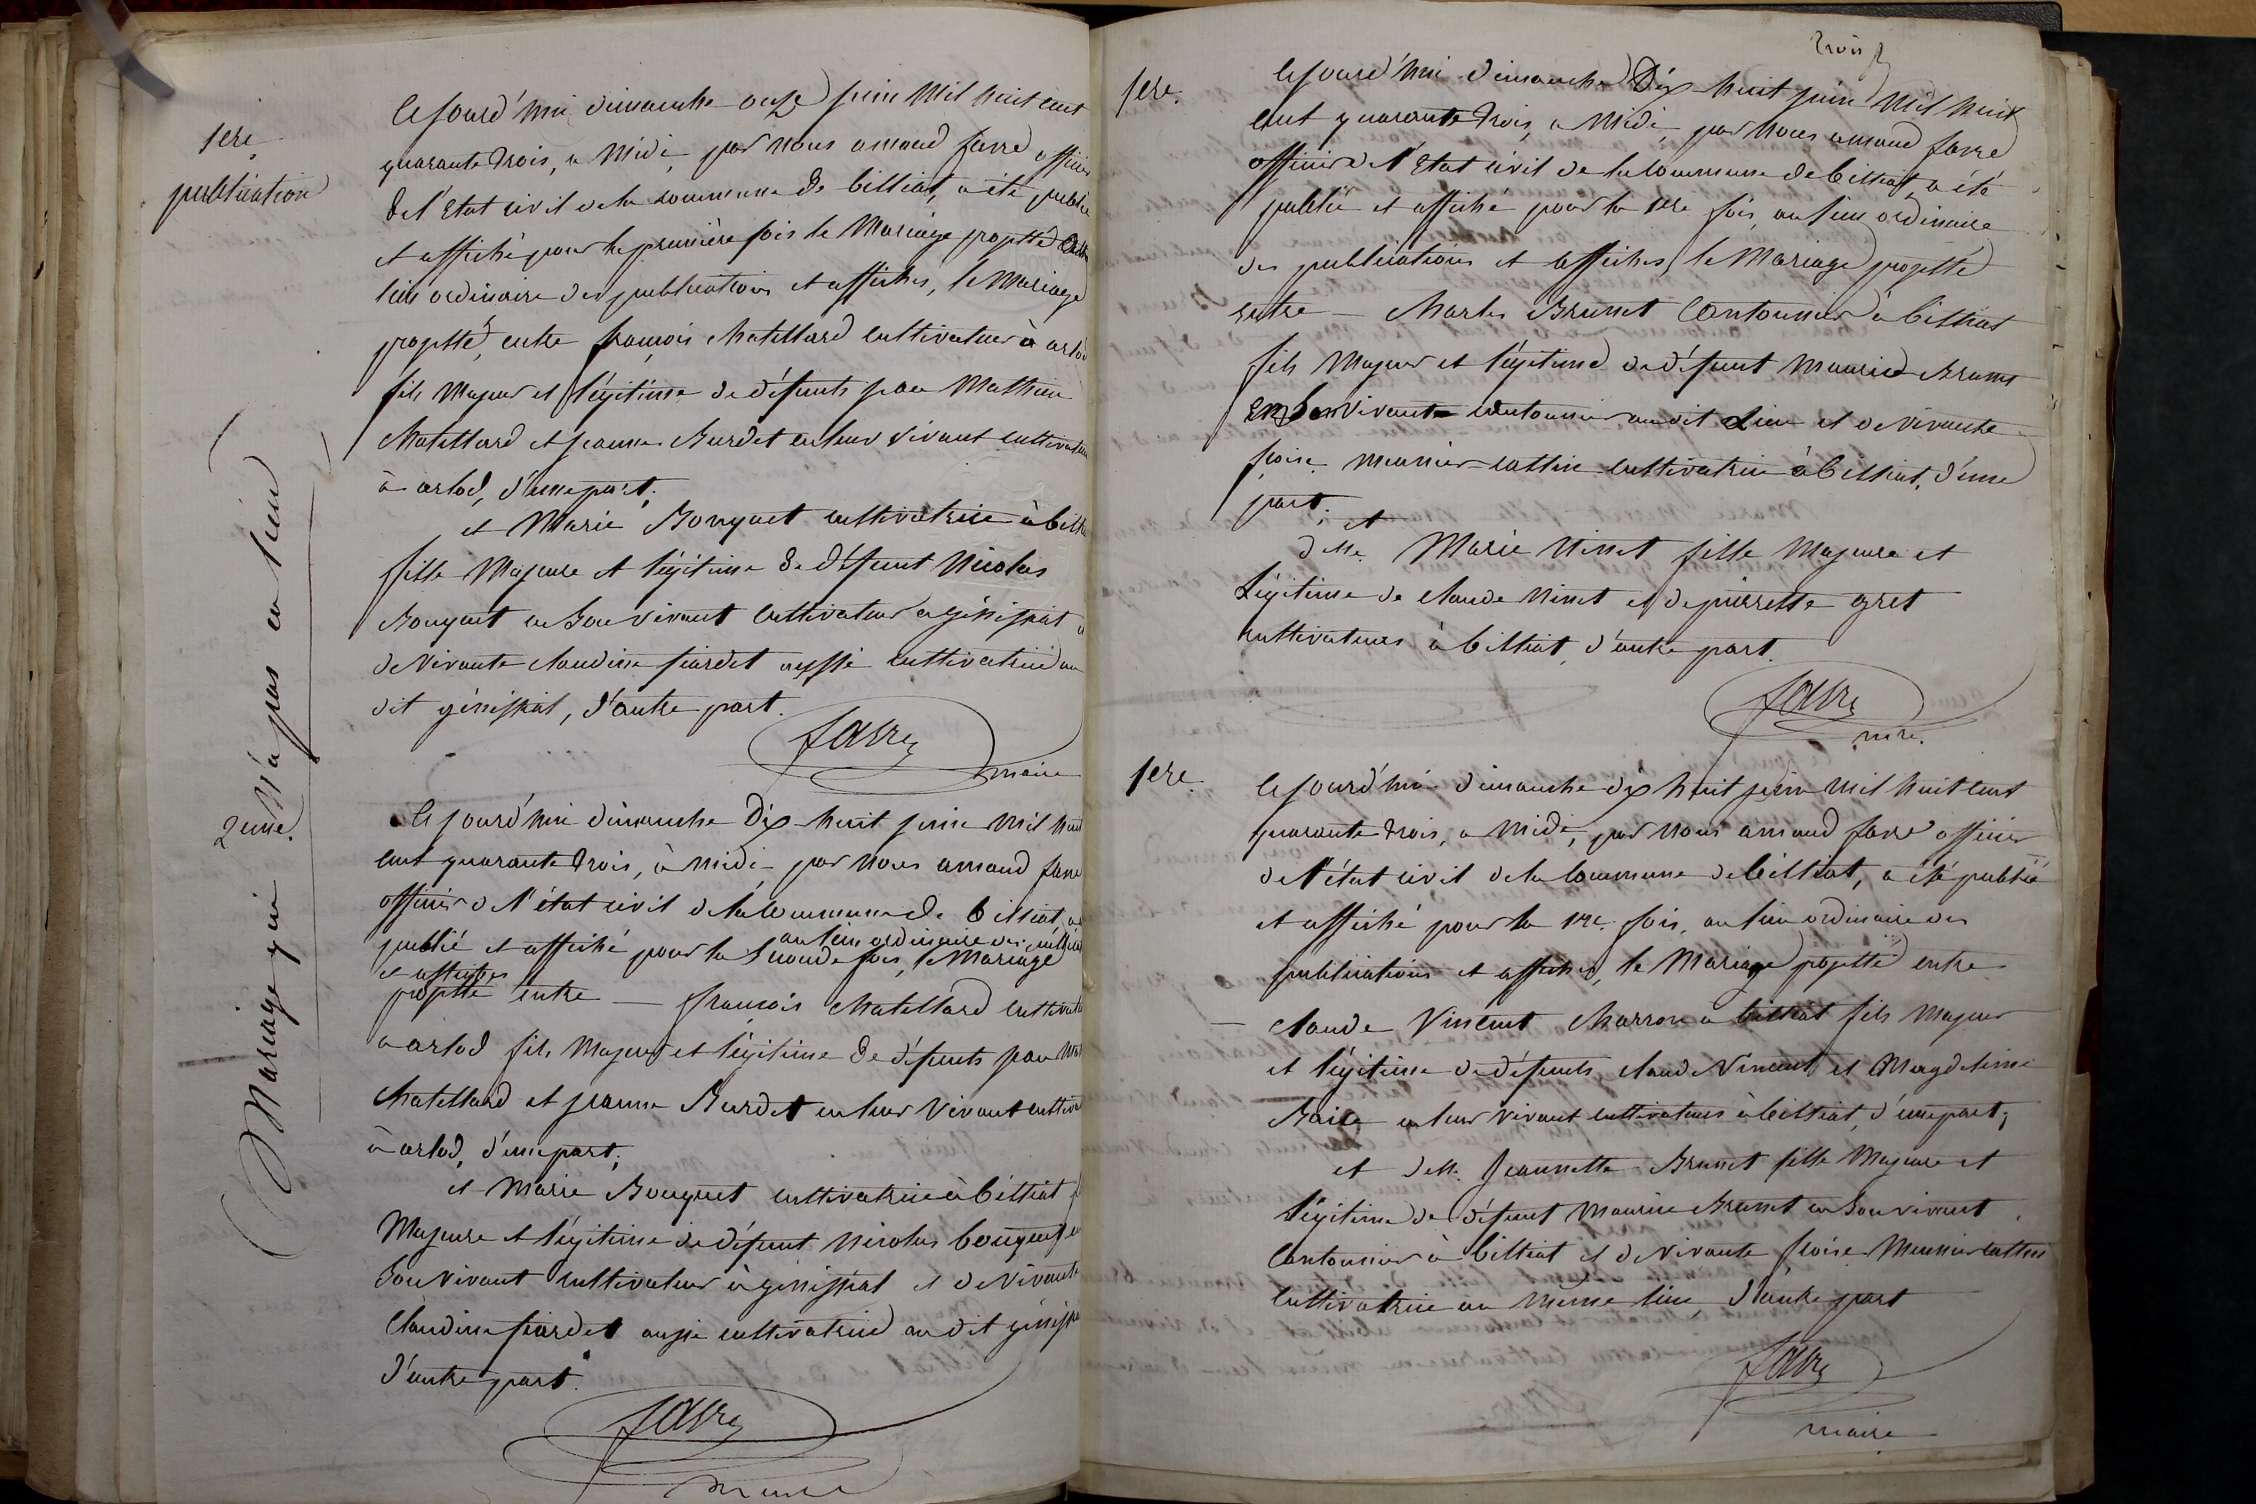 1ere
publication
Cejourd'hui dimanche onze juin mil huit cent
quarante trois, a midi, par nous amand favre officier
de l'Etat civil de la commune de billiat, a été publié
et affiché pour la première fois le Mariage projetté
lieu ordinaire des publications et affiches, le Mariage
projetté, entre françois chatellard cultivateur à arlod
fils Majeur et légitime de défunts jean Mathieu
chatellard et jeanne Burdet en leur vivant cultivateurs
à arlod, d'une part;
et Marie Bouquet cultivatrice à billiat
fille Majeure et légitime de défunt Nicolas
Bouquet en son vivant cultivateur a génissiat et
de vivante claudine fiardet aussi cultivatrice au
dit génissiat, d'autre part.
favre
maire
Mariage qui n'a pas eu lieu
2eme.
Cejourd'hui dimanche Dix huit juin mil huit
cent quarante trois, à midi, par nous amand favre
officier de l'état civil de la commune de billiat, a
publié et affiché pour la seconde fois, le Mariage
au lieu ordinaire des publications
et affiches
projetté entre — françois chatellard cultivateur
a arlod fils Majeur et légitime de défunts jean
chatellard et jeanne Burdet en leur vivant cultivateurs
à arlod, d'une part;
et Marie Bouquet cultivatrice à billiat
Majeure et légitime de défunt Nicolas bouquet en
son vivant cultivateur à génissiat et de vivante
Claudine fiardet aussi cultivatrice au dit génissiat
d'autre part.
favre
maire
trois
1ere.
Cejourd'hui dimanche Dix huit juin mil huit
cent quarante trois, a midi, par nous amand favre
officier de l'Etat civil de la commune de billiat, a été
publié et affiché pour la 1ere fois, au lieu ordinaire
des publications et affiches, le Mariage projetté
entre — charles Brunet Cantonnier à billiat
fils Majeur et légitime de défunt Maurice Brunet
En son vivant cantonnier au dit Lieu et de vivante
floise meunier-cattin cultivatrice à billiat, d'une
part;
et
delle. Marie Ninet fille Majeure et
Légitime de claude Ninet et de pierrette gret
cultivateurs à billiat, d'autre part.
favre
mre.
1ere.
Cejourd'hui dimanche dix huit juin mil huit cent
quarante trois, a midi, par nous amand favre officier
de l'état civil de la Commune de billiat, a été publié
et affiché pour la 1re. fois, au lieu ordinaire des
publications et affiches, le Mariage projetté entre
— claude Vincent charron à billiat fils Majeur
et légitime de défunts claude Vincent et Magdeleine
en leur vivant cultivateurs à billiat, d'une part;
et delle. Jeannette Brunet fille Majeure et
légitime de défunt Maurice Brunet en son vivant
Cantonnier à billiat et de vivante floise Meunier cattin
cultivatrice au même lieu, d'autre part
favre
maire